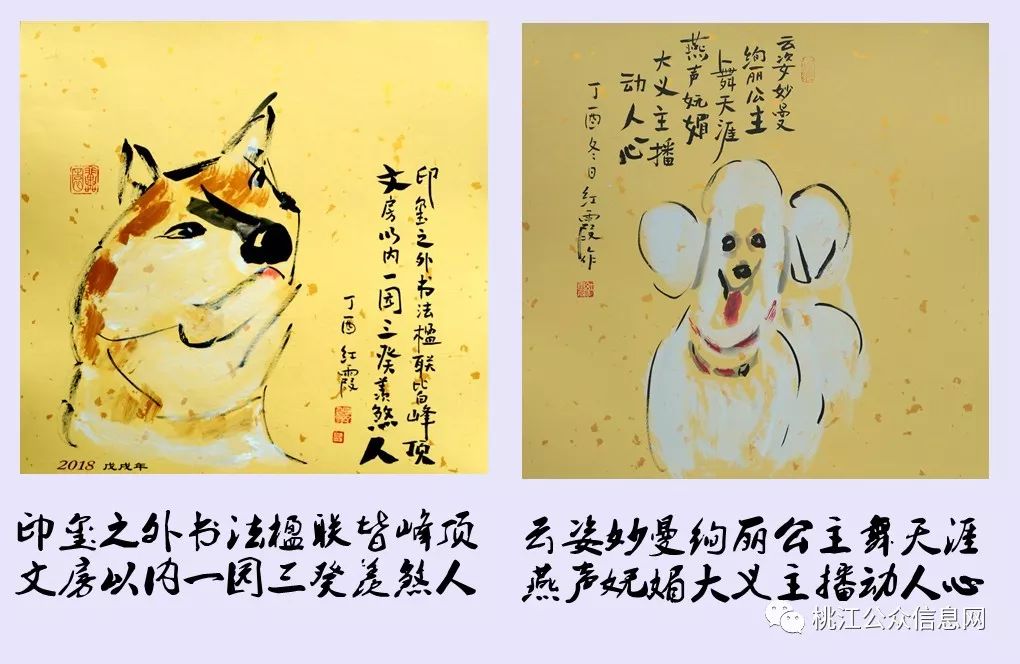 印玺之外书法楹联皆峰顶
文房以内一园三癸羡煞人
丁酉 红霞
2018 戊戌年
云姿妙曼
绚丽公主
舞天涯
燕声妩媚
大义主播
动人心
丁酉冬日红霞作
印玺之外书法楹联皆峰顶
文房以内一园三癸羡煞人
云姿妙曼绚丽公主舞天涯
燕声妩媚大义主播动人心
桃江公众信息网